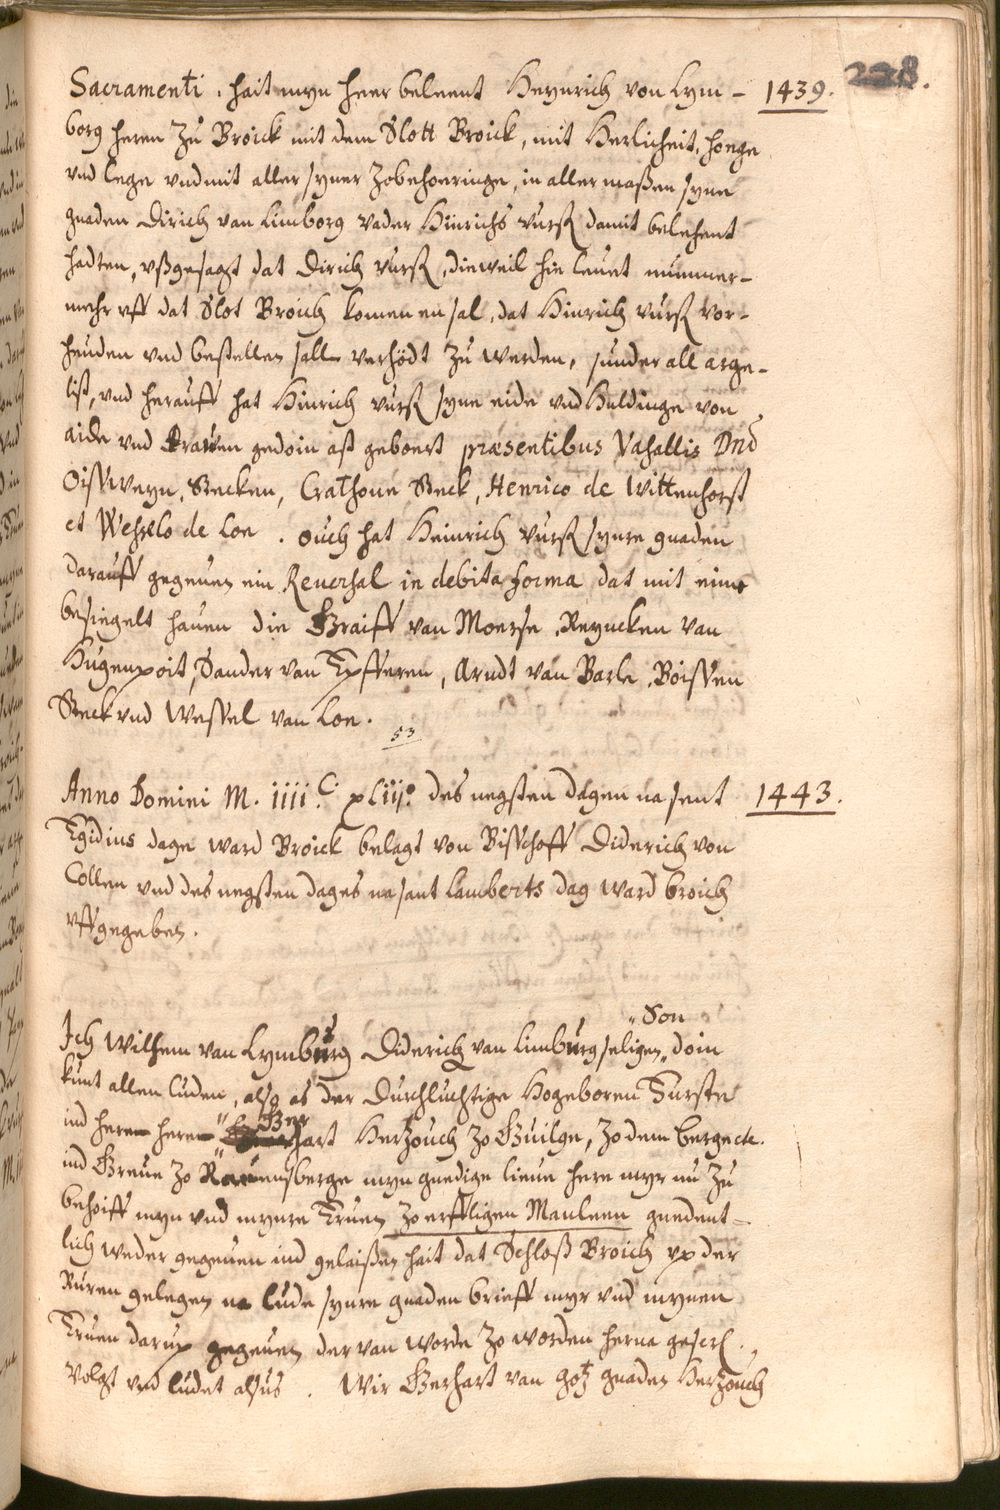 228.
Sacramenti, hait myn heer beleent Heynrich von Lym- 1439.
borg heren zu Broick mit dem Slott Broick, mit Herlicheit, hoege
vnd lege vnd mit aller syner zobehoeringe, in aller maßen syne
gnaden Dirich van Limborg vader Hinrichs vurß damit belehent
hadten, vßgesagt dat Dirich vurß, dieweil hie leuet nummer-
mehr vff dat Slot Broich komen en sal, dat Hinrich vurß vor-
heuden vnd bestellen sall verhödt zu werden, sunder all arge-
list, vnd herauff hat Hinrich vurß syne eide vnd Huldinge von
aide vnd trawen gedoin aß geboert præsentibus Vasallis Dno
Oissweyn, Stecken, Crathone Steck, Henrico de Wittenhorst
et Wesselo de Loe. Ouch hat Heinrich vurß synre gnaden
darauff gegeuen ein Reuersal in debita forma dat mit eme
besiegelt hauen die Graiff van Moerse, Reyncken van
Hugenpoit, Sander van Epfferen, Arndt van Barle, Boissen
Steck vnd Wessel van Loe.
53
Anno Domini M. iiii.C xliij.o des negsten dagen na sent 1443.
Egidius dage ward Broick belagt von Bisschoff Diderich von
Collen vnd des negsten dages na sant Lamberts dag ward broich
vffgegeben.
Son
Ich Wilhem van Lymburg Diderich van Limburg seligen doin
kunt allen luden, also as der Durchluchtige Hogeboren Furste
ind here here Gerhart Herzouch zo Guilge, zo dem Berge etc.
ind Greue zo Rauensberge myn gnedige lieue here myr nu zu
behoiff myn vnd mynre Eruen zo erffligen Manleen gnedent-
lich weder gegeuen ind gelaißen hait dat Schloß Broich vp der
Ruren gelegen na lude synre gnaden brieff myr vnd mynen
Eruen darup gegeuen der van worde zo worden herna geschr.
Volgt vnd ludet alsus. Wir Gerhart van gotz gnaden Herzouch